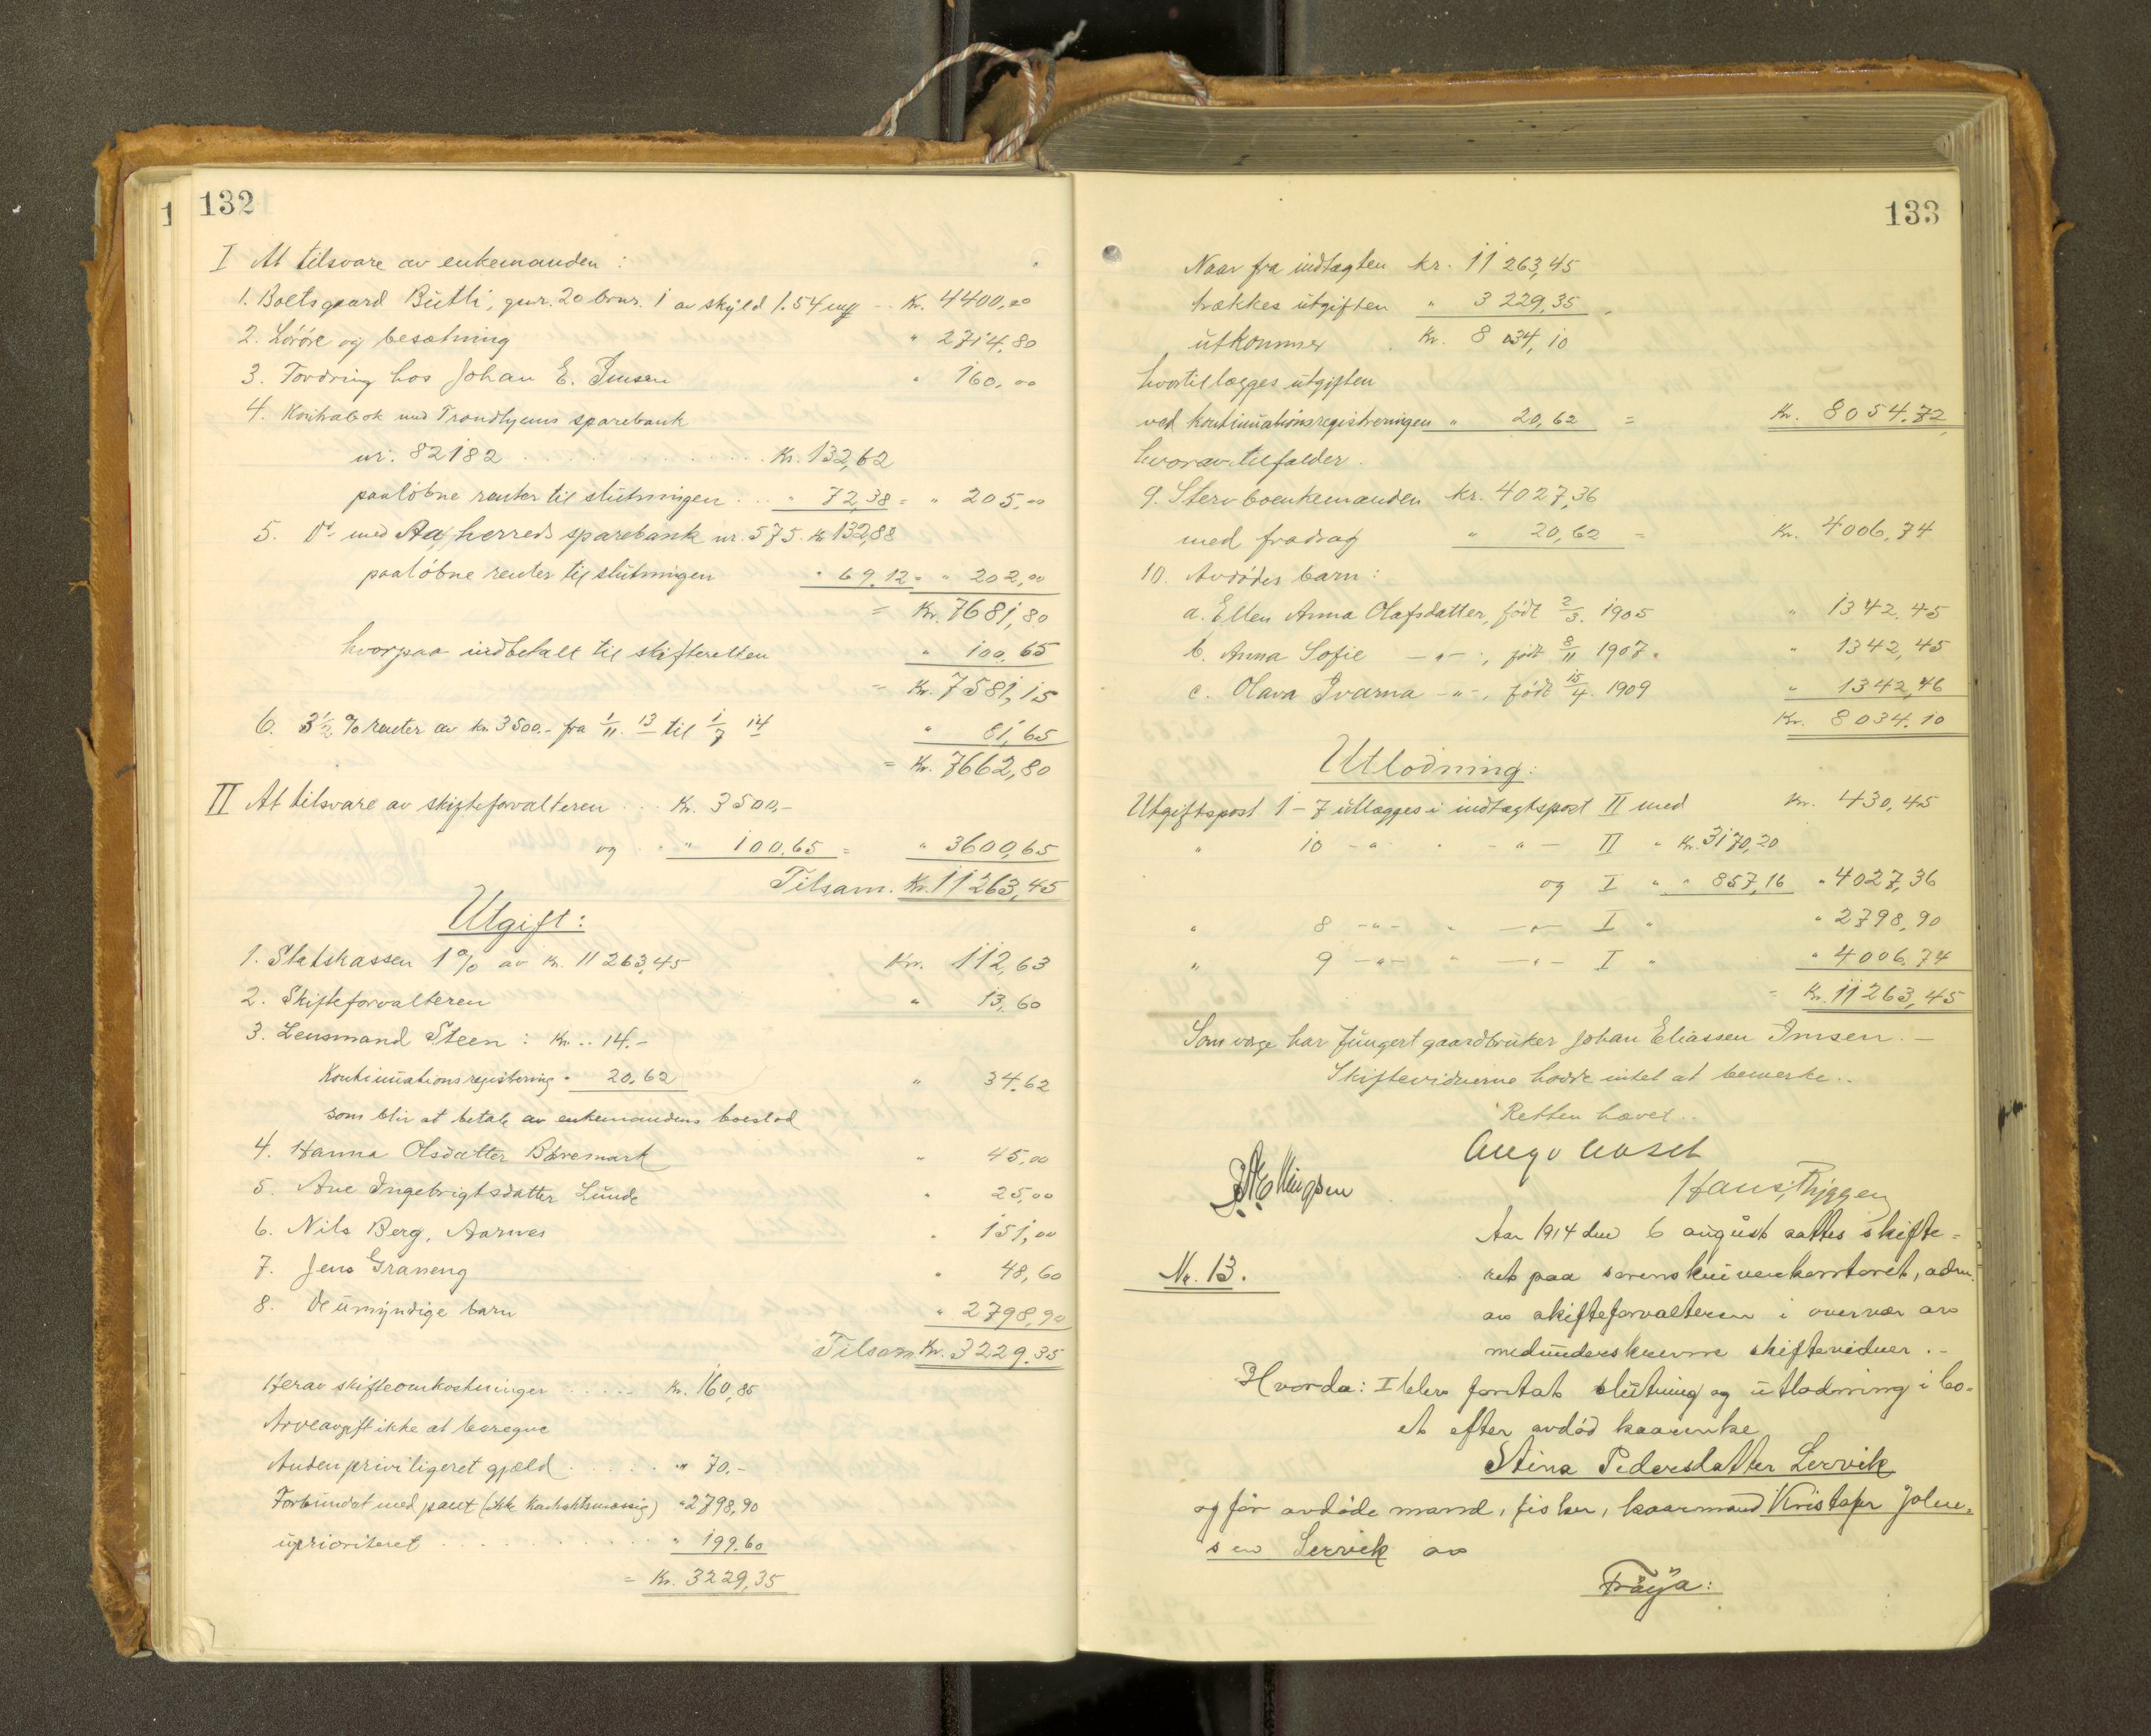 132
I At tilsvare av enkemanden :
1. Boetsgaard Bütli, gnr. 20 brnr. 1 av skyld 1.54 Kr. 4400,00
2. Lösöre og besætning " 2714,80
3. Fordring hos Johan E. Imsen " 160,00
4. Kontrabok med Trondhjems sparebank
nr. 82182 . . . . Kr. 132,62
paaløbne renter til slutningen . . " 72,38 = " 205,00
5. Do med Aa herreds sparebank nr. 575. Kr 132,88
paaløbne renter til slutningen " 69,12 = " 202,00
= Kr. 7681,80
hvorpaa indbetalt til skifteretten " 100,65
= Kr. 7581,15
6. 3½ % renter av kr. 3500.- fra 1/11 13 til 1/7 14 " 81,65
= Kr. 7662,80
II At tilsvare av skifteforvalteren . . . Kr. 3500,-
og . . " 100,65 = " 3600,65
Tilsam. Kr. 11263,45
Utgift:
1. Statskassen 1 % av kr. 11263,45 Kr. 112,63
2. Skifteforvalteren " 13,60
3. Lensmand Steen : Kr. .. 14.-
Kontinuationsregistering " 20,62 " 34.62
som blir at betale av enkemandens boeslod
4. Hanna Olsdatter Bøvemark " 45,00
5. Ane Ingebrigtsdatter Lunde " 25,00
6. Nils Berg, Aarnes " 151,00
7. Jens Graneng " 48,60
8. De umyndige barn " 2798,90
Tilsam Kr. 3229.35
Herav skifteomkostninger . . . . . Kr. 160,85
Arveavgift ikke at beregne
Anden priviligeret gjæld . . . . . " 70.-
Forbundet med pant (ikke kontraktsmæssig) " 2798,90
uprioriteret . . . . . . . " 199.60
= Kr. 3229,35
133
Naar fra indtægten kr. 11 263,45
trækkes utgiften " 3 229,35
utkommer Kr. 8 034,10
hvortil lægges utgiften
ved kontinuationsregistreringen " 20,62 = Kr. 8054.72
hvorav tilfalder.
9. Stervboenkemanden kr. 4027,36
med fradrag " 20,62 = Kr. 4006,74
10. Avdødes barn :
a. Ellen Anna Olafsdatter, født 2/3. 1905 " 1342,45
b. Anna Sofie -"-, født 8/11 1907. " 1342,45
c. Olava Ivarna -"-, født 15/4. 1909 " 1342,46
Kr. 8034.10
Utlodning:
Utgiftspost 1 - 7 utlægges i indtægtspost II med Kr. 430,45
" 10 -"- " -"- II " Kr. 3170,20
og I " " 857,16 " 4027,36
" 8 -"- " -"- I " " 2798,90
" 9 -"- " -"- I " " 4006.74
= Kr. 11263,45
Som verge har fungert gaardbruker Johan Eliassen Imsen. -
Skiftevidnerne hadde intet at bemerke..
Retten hævet..
Aage Aaset
Ellingsen
Hans Thyggen
Aar 1914 den 6 august sattes skifte-
Nr. 13.
ret paa sorenskriverkontoret, adm.
av skifteforvalteren i overvær av
medunderskrevne skiftevidner. -
Hvorda: I blev foretat slutning og utlodning i bo-
et efter avdød kaarenke
Stina Pedersdatter Lervik
og før avdøde mand, fisker, kaarmand Kristofer John-
sen Lervik av
Frøya: